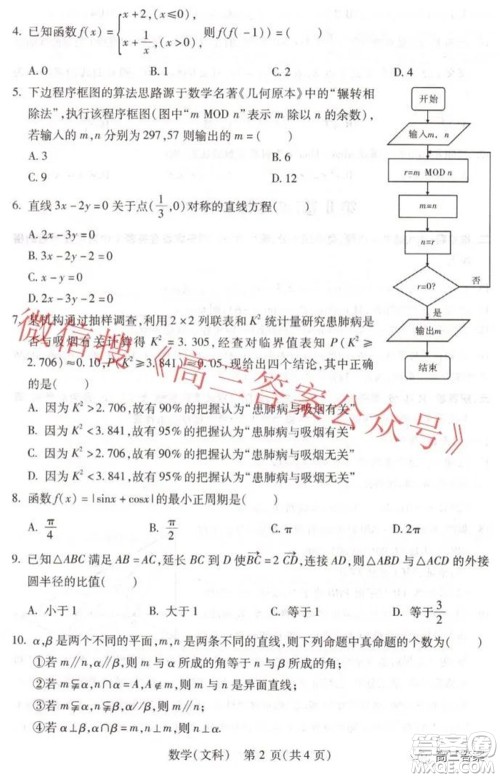 4. 已知函数f(x)={x+2,(x≤0), x+1/x,(x>0), 则f(f(-1))=( )
A. 0 B. 1 C. 2 D. 4
5. 下边程序框图的算法思路源于数学名著《几何原本》中的“辗转相
除法”,执行该程序框图(图中“m MOD n”表示 m 除以 n 的余数),
若输入的 m,n 分别为 297,57 则输出的 m=( )
A. 3 B. 6
C. 9 D. 12
6. 直线 3x-2y=0 关于点(1/3,0)对称的直线方程( )
A. 2x-3y=0
B. 3x-2y-2=0
C. x-y=0
D. 2x-3y-2=0
开始
输入m,n
r=m MOD n
m=n
n=r
r=0?
输出m
结束
7. 某机构通过抽样调查,利用 2×2 列联表和 K² 统计量研究患肺病是
否与吸烟有关 得 K²=3.305,经查对临界值表知 P(K²≥
2.706)≈0.10,P(K²≥3.841)≈0.05,现给出四个结论,其中正确的是
( )
A. 因为 K²>2.706,故有 90%的把握认为“患肺病与吸烟有关”
B. 因为 K²<3.841,故有 95%的把握认为“患肺病与吸烟有关”
C. 因为 K²>2.706,故有 90%的把握认为“患肺病与吸烟无关”
D. 因为 K²<3.841,故有 95%的把握认为“患肺病与吸烟无关”
8. 函数 f(x)=|sinx+cosx|的最小正周期是( )
A. π/4 B. π/2 C. π D. 2π
9. 已知△ABC 满足 AB=AC,延长 BC 到 D 使BC=2 CD,连接 AD,则△ABD 与△ACD 的外接
圆半径的比值( )
A. 小于 1 B. 大于 1 C. 等于 1 D. 等于3/2
10. α,β是两个不同的平面,m,n 是两条不同的直线,则下列命题中真命题的个数为( )
①若 m∥n,α∥β,则 m 与 α 所成的角等于 n 与 β 所成的角;
②若 m⫋α,n∩α=A,A∉m,则 m 与 n 是异面直线;
③若 m⫋α,n⫋β,m∥n,则 α∥β;
④若 α⊥β,α∩β=m,n⊥m,则 n⊥β.
数学(文科) 第 2 页(共 4 页)
微信搜《高三答案公众号》
高三答案